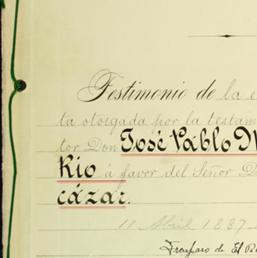 Testimonio de la e
ta otorgada por la testam
tor Don José Pablo M
Río á favor del Señor D
cázar.
11 Abril 1887
de El R